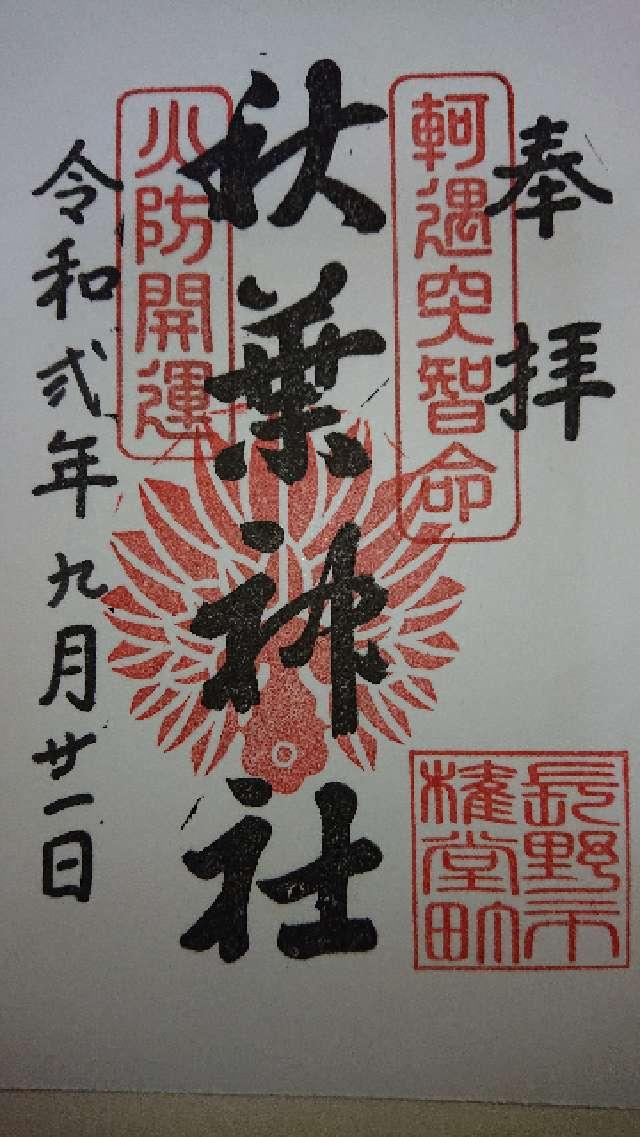 奉拝
軻遇突智命
秋葉神社
火防開運
令和弐年九月廿一日
長野市
権堂町